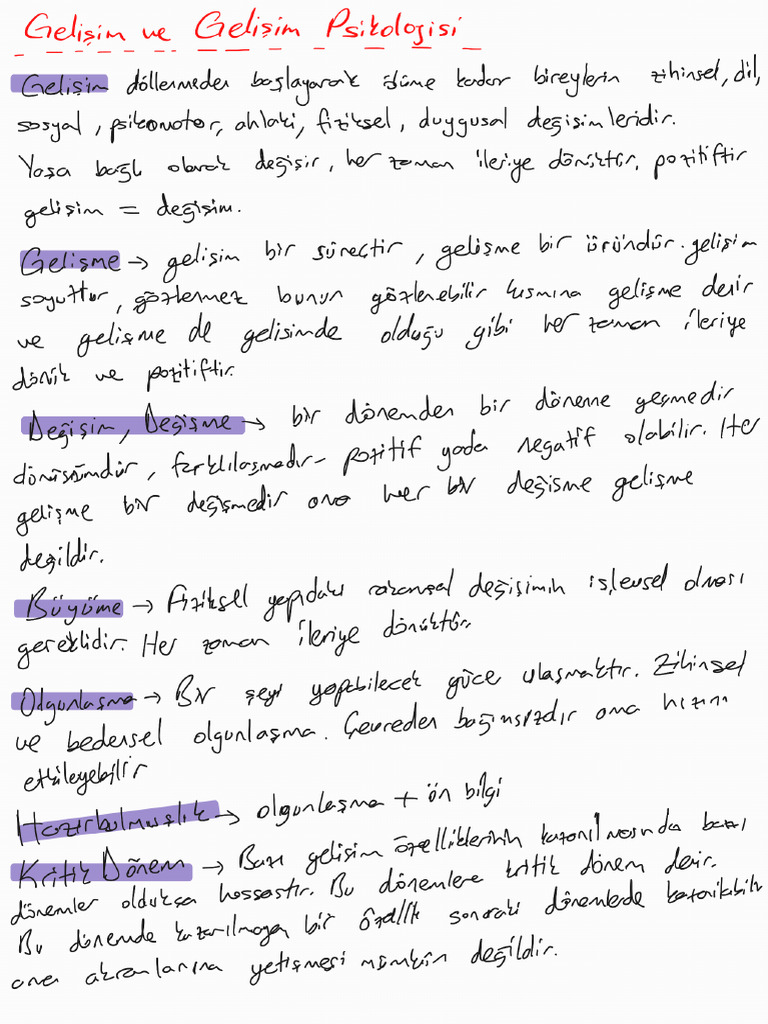 Gelişim ve Gelişim Psikolojisi
Gelişim döllenmeden başlayarak ölüme kadar bireylerin zihinsel, dil,
sosyal, psikomotor, ahlaki, fiziksel, duygusal değişimleridir.
Yaşa bağlı olarak değişir, her zaman ileriye dönüktür, pozitiftir
gelişim = değişim.
Gelişme → gelişim bir süreçtir, gelişme bir üründür. gelişim
soyuttur, gözlenmez bunun gözlenebilir kısmına gelişme denir
ve gelişme de gelişimde olduğu gibi her zaman ileriye
dönük ve pozitiftir.
Değişim, Değişme → bir dönemden bir döneme geçmedir
dönüşümdür, farklılaşmadır- pozitif yada negatif olabilir. Her
gelişme bir değişmedir ama her bir değişme gelişme
değildir.
Büyüme → Fiziksel yapıdaki oransal değişimin işlevsel olması
gereklidir. Her zaman ileriye dönüktür.
Olgunlaşma → Bir şeyi yapabilecek güce ulaşmaktır. Zihinsel
ve bedensel olgunlaşma. Çevreden bağımsızdır ama hızını
etkileyebilir
Hazırbulmuşluk → olgunlaşma + ön bilgi
Kritik Dönem → Bazı gelişim özelliklerinin kazanılmasında bazı
dönemler oldukça hassastır. Bu dönemlere kritik dönem denir.
Bu dönemde kazanılmayan bir özellik sonraki dönemlerde kazanılabilir
ama akranlarına yetişmesi mümkün değildir.